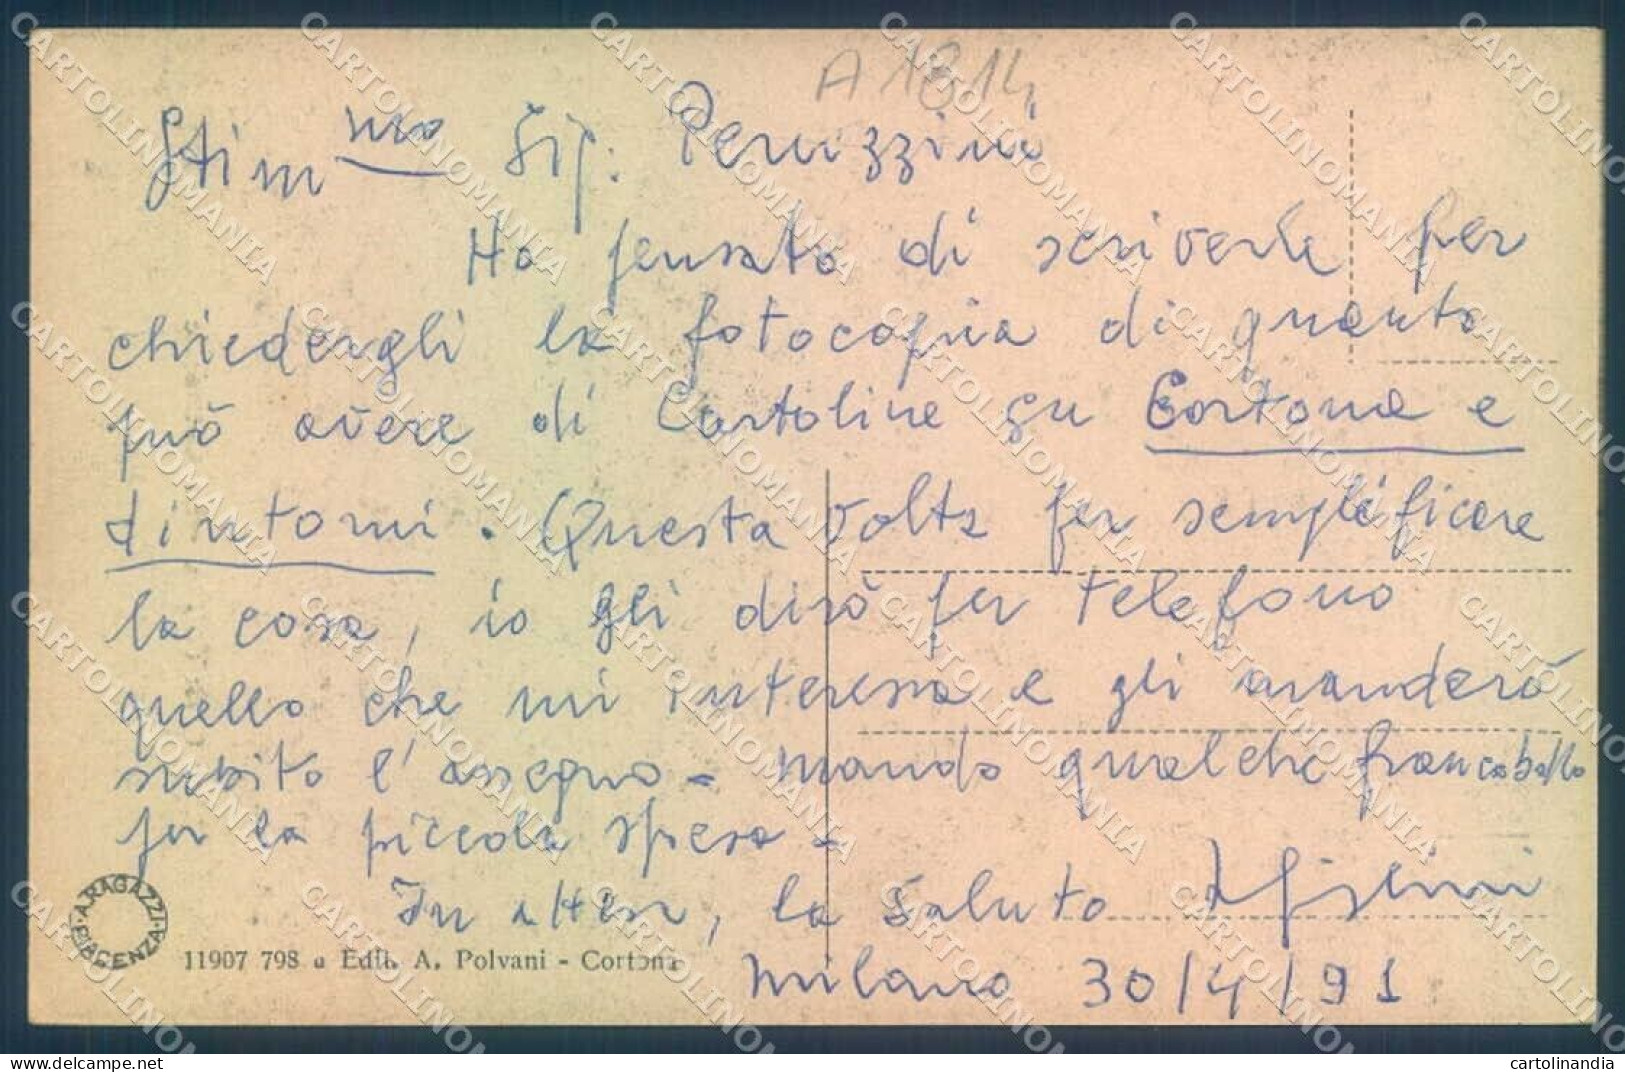 A 1814
Stim mo Sig. Peruzzini
Ho pensato di scriverle per
chiedergli la fotocopia di quanto
può avere di Cartoline su Cortona e
dintorni. Questa volta per semplificare
la cosa, io gli dirò per telefono
quello che mi interessa e gli manderò
subito l'assegno - mando qualche francobollo
per la piccola spesa -
In attesa, la saluto
Milano 30/4/91
A. RAGAZZI · PIACENZA ·
11907 798 a Edit. A. Polvani - Cortona
CARTOLINOMANIA
cartolinandia